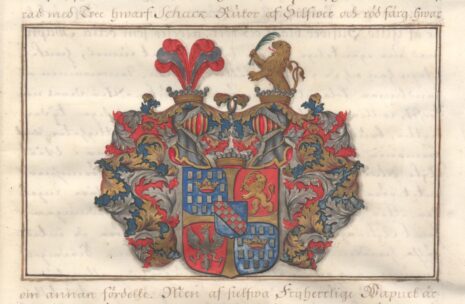 rad med Tree hwarf Schack Rutor af Silfwer och röd färg, hwar
om annan fördelte. Men af sielfwa Fryherrlige Wapnet är